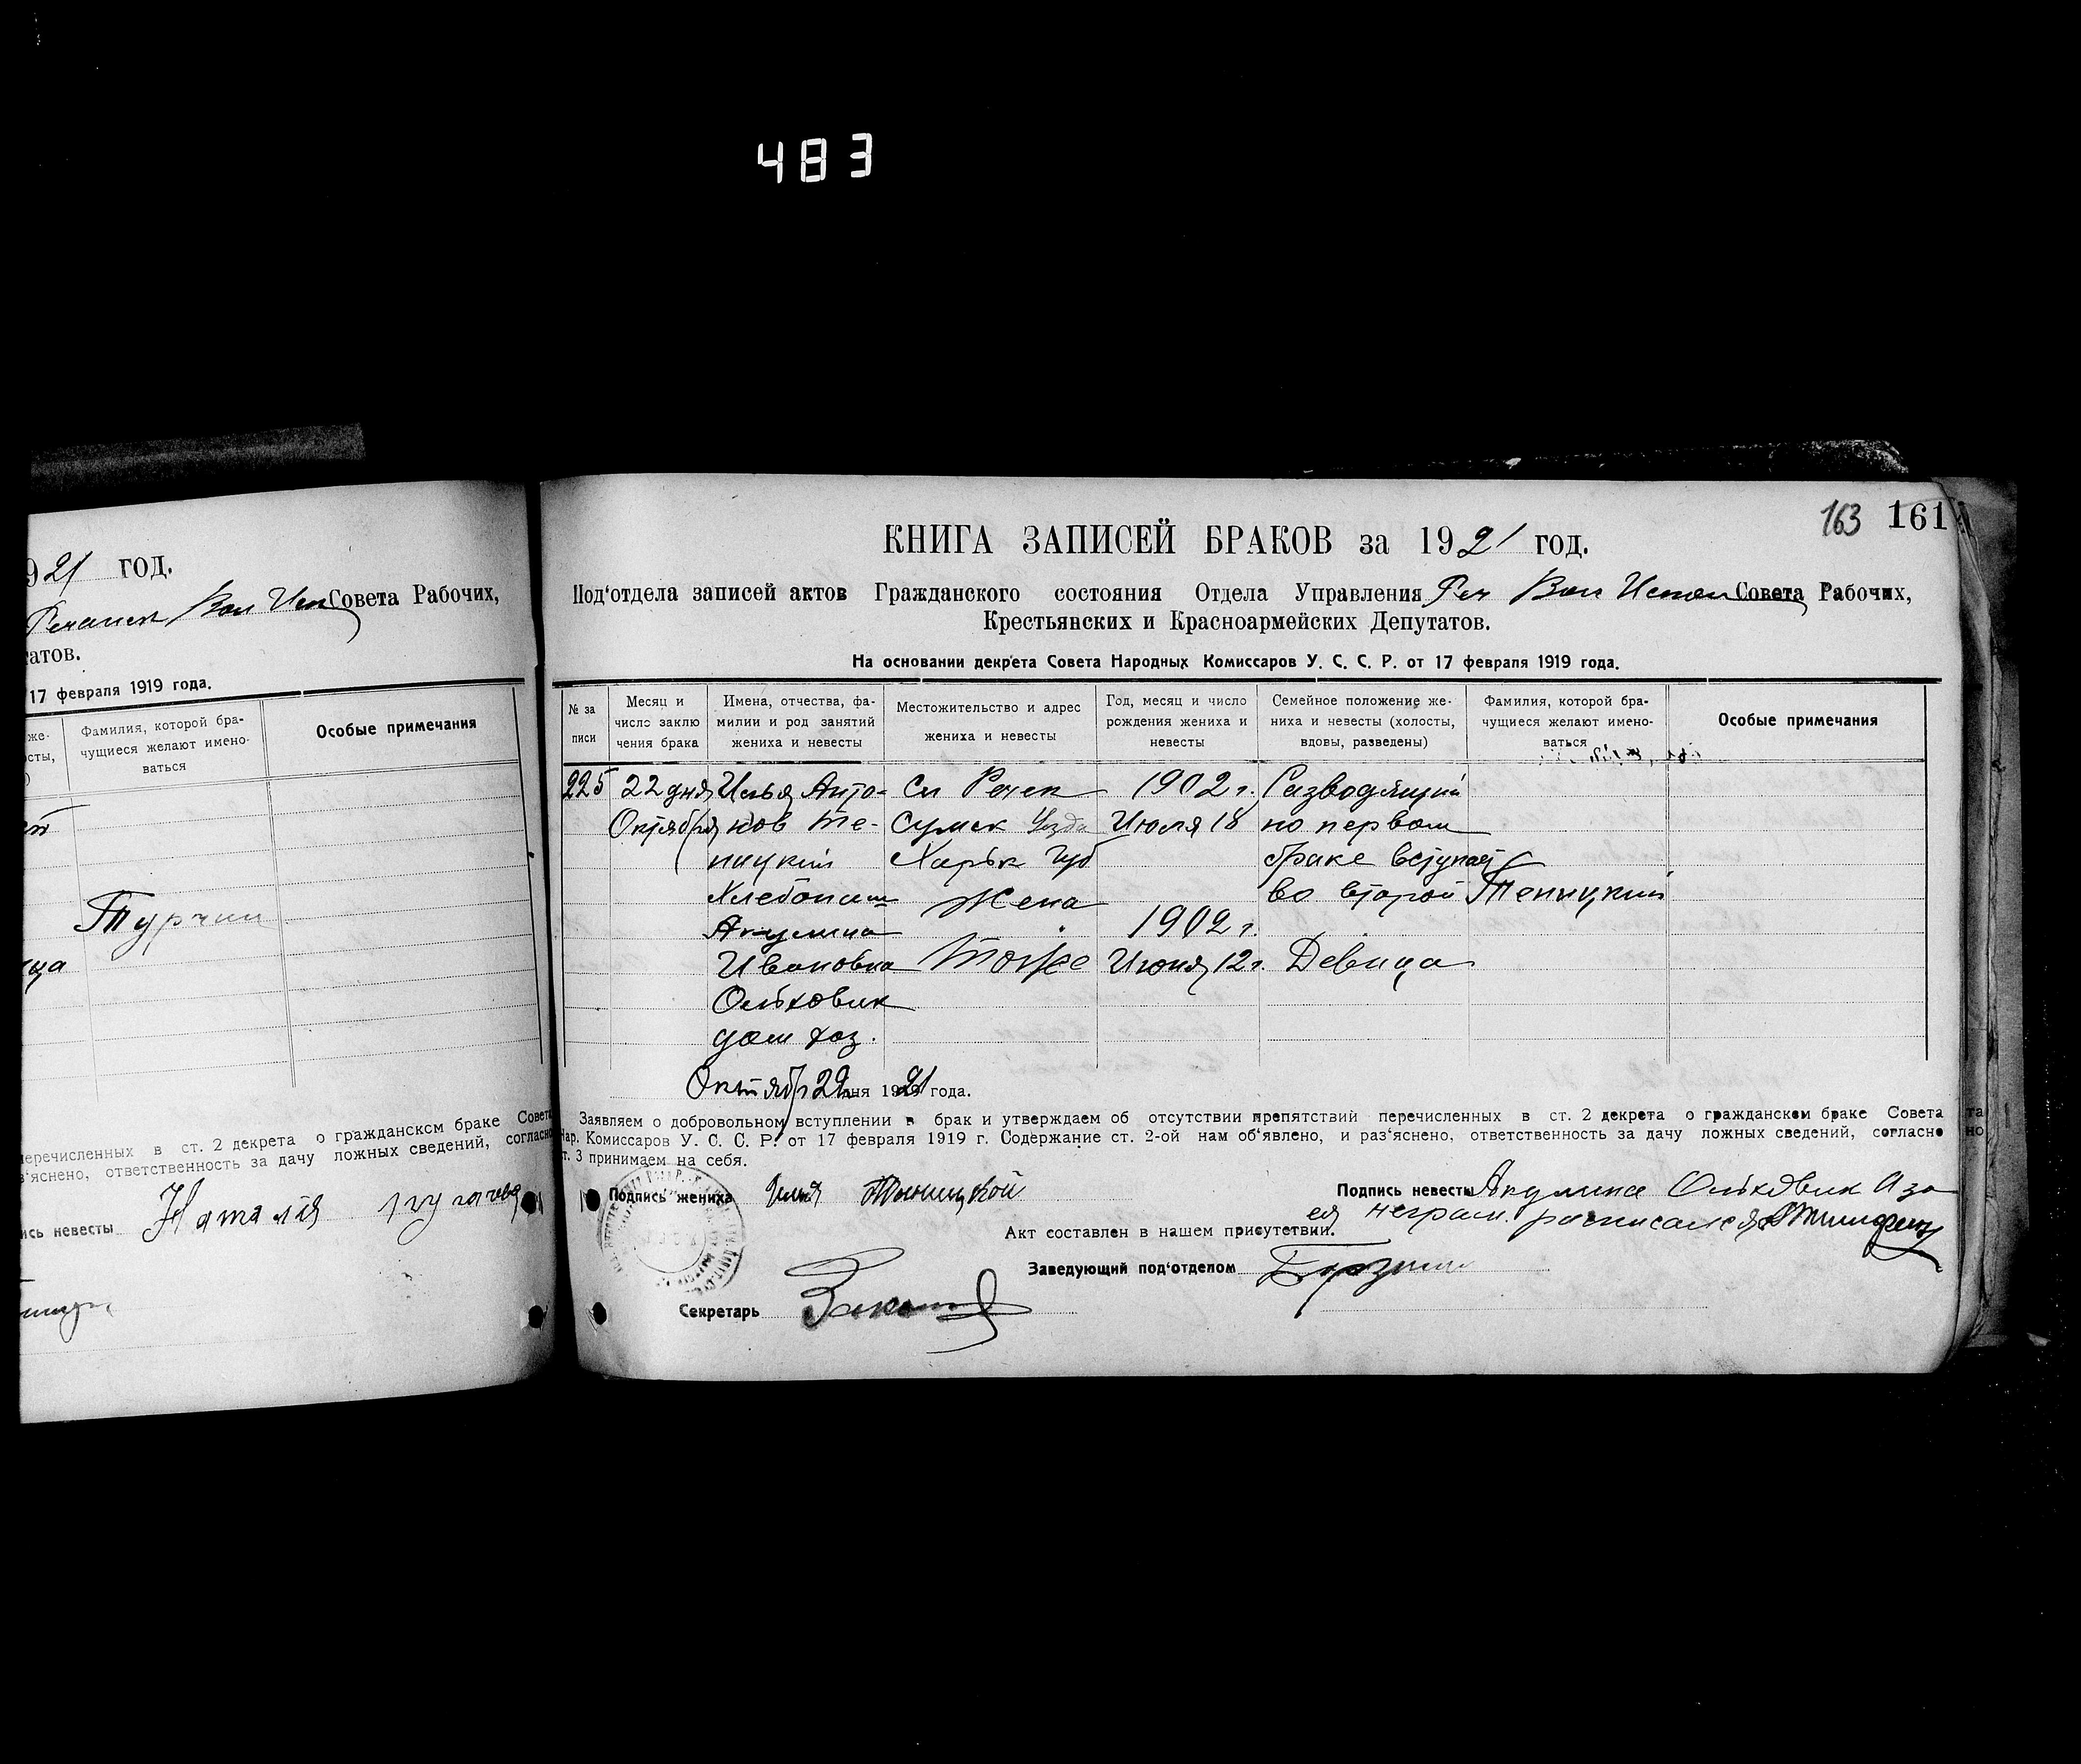 483
921 год.
Совета Рабочих,
татов.
17 февраля 1919 года.
же-
сты,
)
Фамилия, которой бра-
чущиеся желают имено-
ваться
Особые примечания
Турчин
ица
перечисленных в ст. 2 декрета о гражданском браке Совета
з'яснено, ответственность за дачу ложных сведений, согласно
ись невесты Наталия
163 161
КНИГА ЗАПИСЕЙ БРАКОВ за 1921 год.
Под'отдела записей актов Гражданского состояния Отдела Управления Реч Вол Испол Совета Рабочих,
Крестьянских и Красноармейских Депутатов.
На основании декрета Совета Народных Комиссаров У. С. С. Р. от 17 февраля 1919 года.
№ за
писи
Месяц и
число заклю
чения брака
Имена, отчества, фа-
милии и род занятий
жениха и невесты
Местожительство и адрес
жениха и невесты
Год, месяц и число
рождения жениха и
невесты
Семейное положение же-
ниха и невесты (холосты,
вдовы, разведены)
Фамилия, которой бра-
чущиеся желают имено-
ваться
Особые примечания
225 22 дня Илья Анто- Сл Речек 1902 г. Разводящий
Октября нов Те- Сумск Уезда Июля 18 по первом
ницкий Харьк губ браке вступает
Хлебопаш Жена во второй Теницкий
Акулина 1902 г.
Ивановна Тоже Июня 12 г. Девица
Ольховик
дом хоз.
Октября 22 дня 1921 года.
Заявляем о добровольном вступлении в брак и утверждаем об отсутствии препятствий перечисленных в ст. 2 декрета о гражданском браке Совета
Нар. Комиссаров У. С. С. Р. от 17 февраля 1919 г. Содержание ст. 2-ой нам об'явлено, и раз'яснено, ответственность за дачу ложных сведений, согласно
ст. 3 принимаем на себя.
Подпись жениха Илия Тыницкой
Подпись невесты Акулина Ольховик А за
ея неграм. расписался
Акт составлен в нашем присутствии.
Заведующий под'отделом
Секретарь